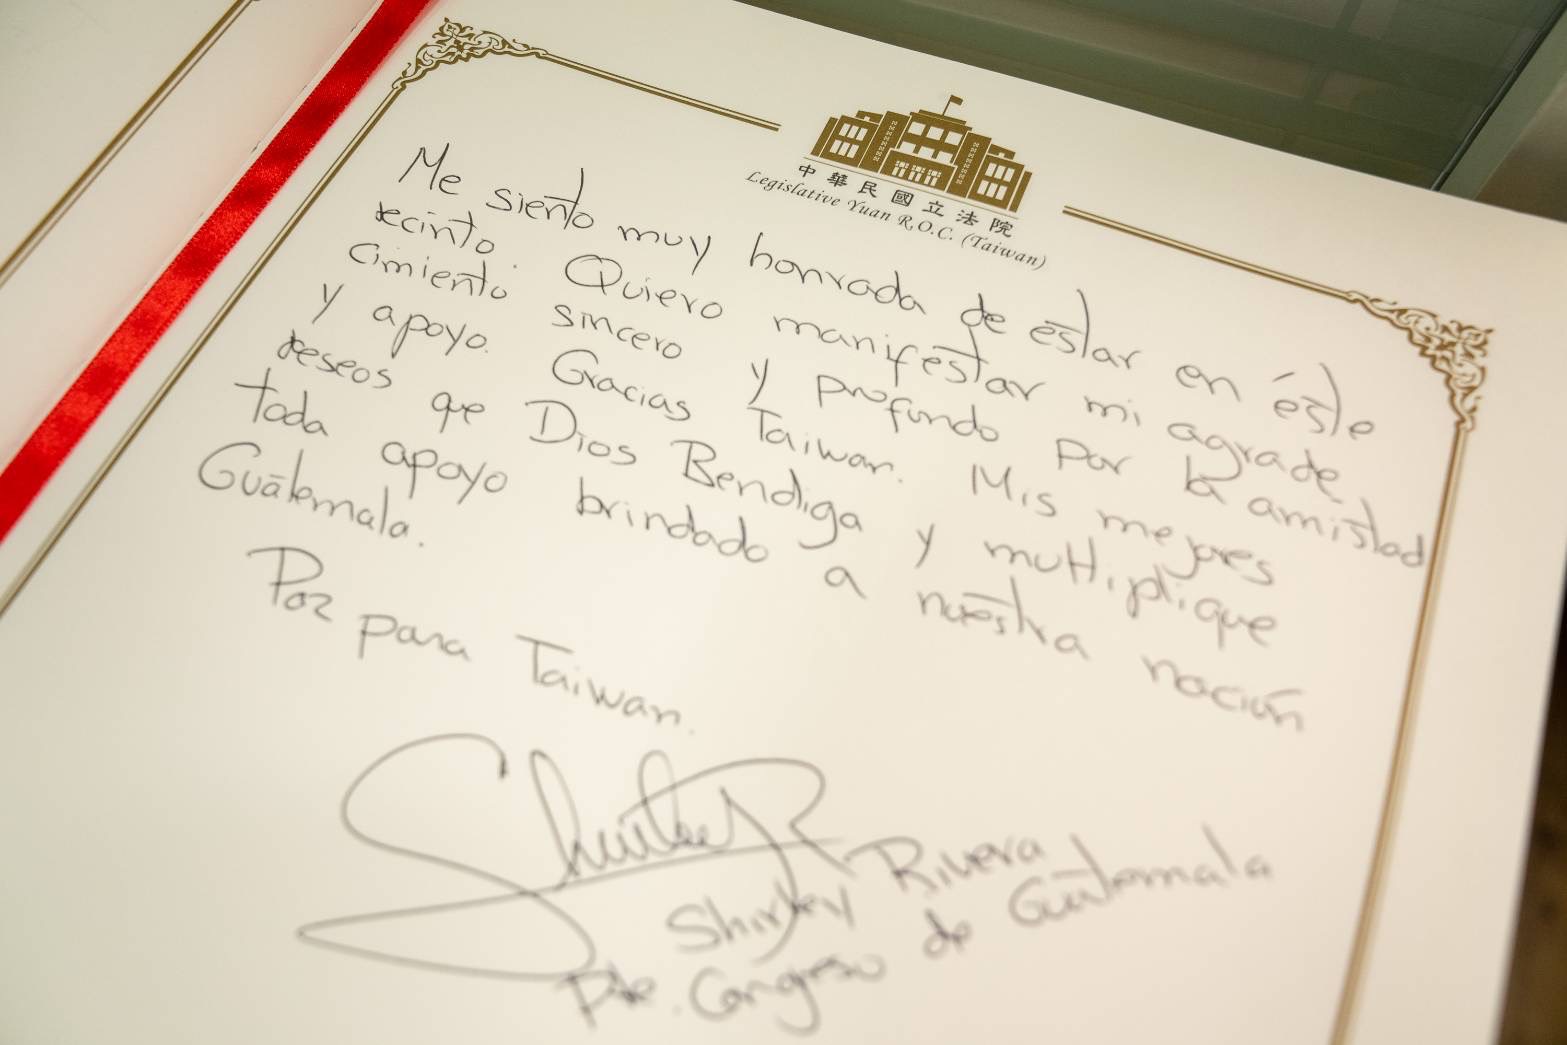 中華民國立法院
Legislative Yuan R.O.C. (Taiwan)
Me siento muy honrada de estar en éste
recinto. Quiero manifestar mi agrade
cimiento sincero y profundo por la amistad
y apoyo. Gracias Taiwan. Mis mejores
deseos que Dios Bendiga y multiplique
todo apoyo brindado a nuestra nación
Guatemala.
Paz para Taiwan.
Shirley R
Shirley Rivera
Pdte. Congreso de Guatemala